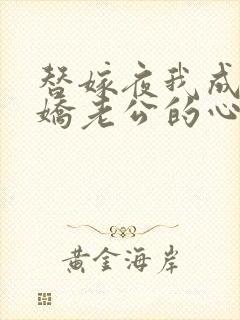 替嫁夜我成
嬌老公的心
黃金海岸